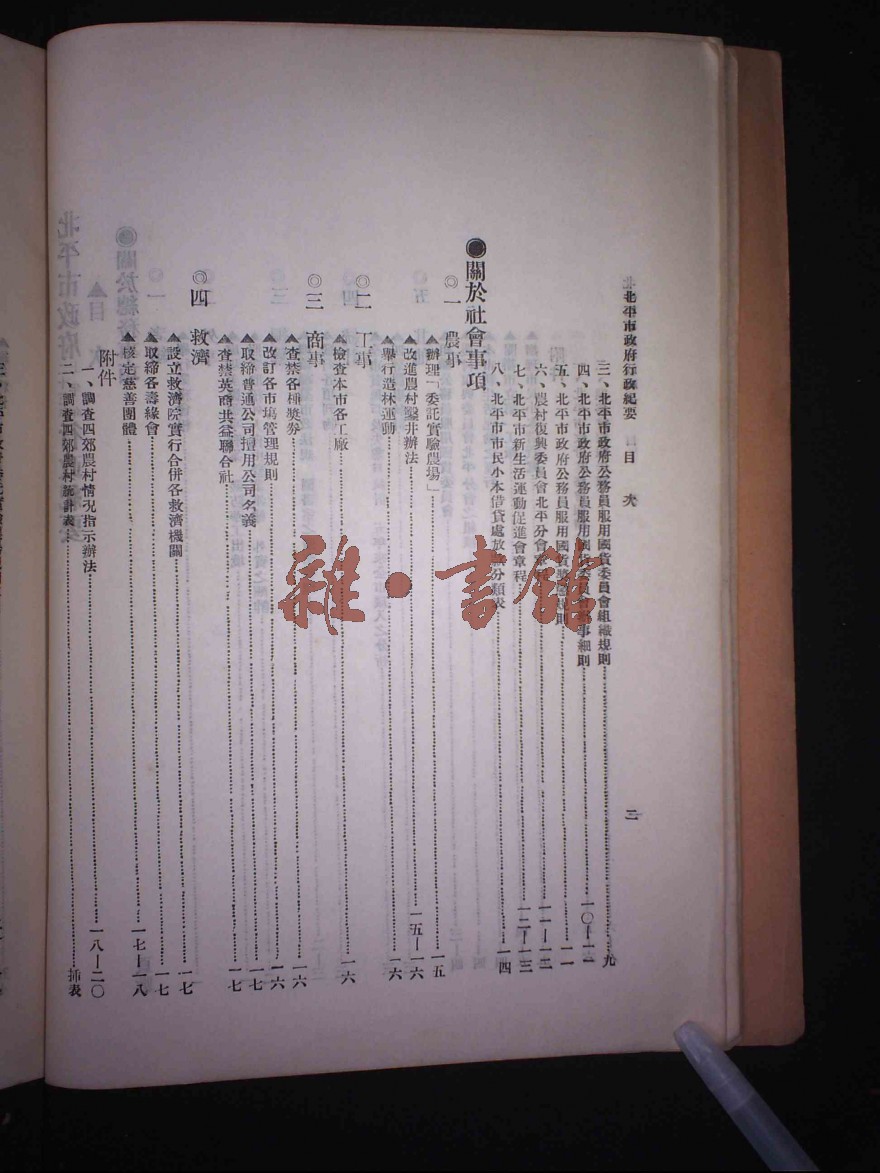 北平市政府行政紀要 目 次 二
三、北平市政府公務員服用國貨委員會組織規則……九
四、北平市政府公務員服用國貨委員會辦事細則……一〇—一一
五、北平市政府公務員服用國貨規則……一一
六、農村復興委員會北平分會章程……一一—一二
七、北平市新生活運動促進會章程……一二—一三
八、北平市市民小本借貸處放款分類表……一四
◉關於社會事項
◎一 農事
▲辦理「委託實驗農場」……一五
▲改進農村鑿井辦法……一五—一六
▲舉行造林運動……一六
◎二 工事
▲檢查本市各工廠……一六
◎三 商事
▲查禁各種獎券……一六
▲改訂各市場管理規則……一六
▲取締普通公司擅用公司名義……一七
▲查禁英商共益聯合社……一七
◎四 救濟
▲設立救濟院實行合併各救濟機關……一七
▲取締各壽緣會……一七
▲核定慈善團體……一七—一八
附件
一、調查四郊農村情況指示辦法……一八—二〇
二、調查四郊農村統計表……插表
雜·書館